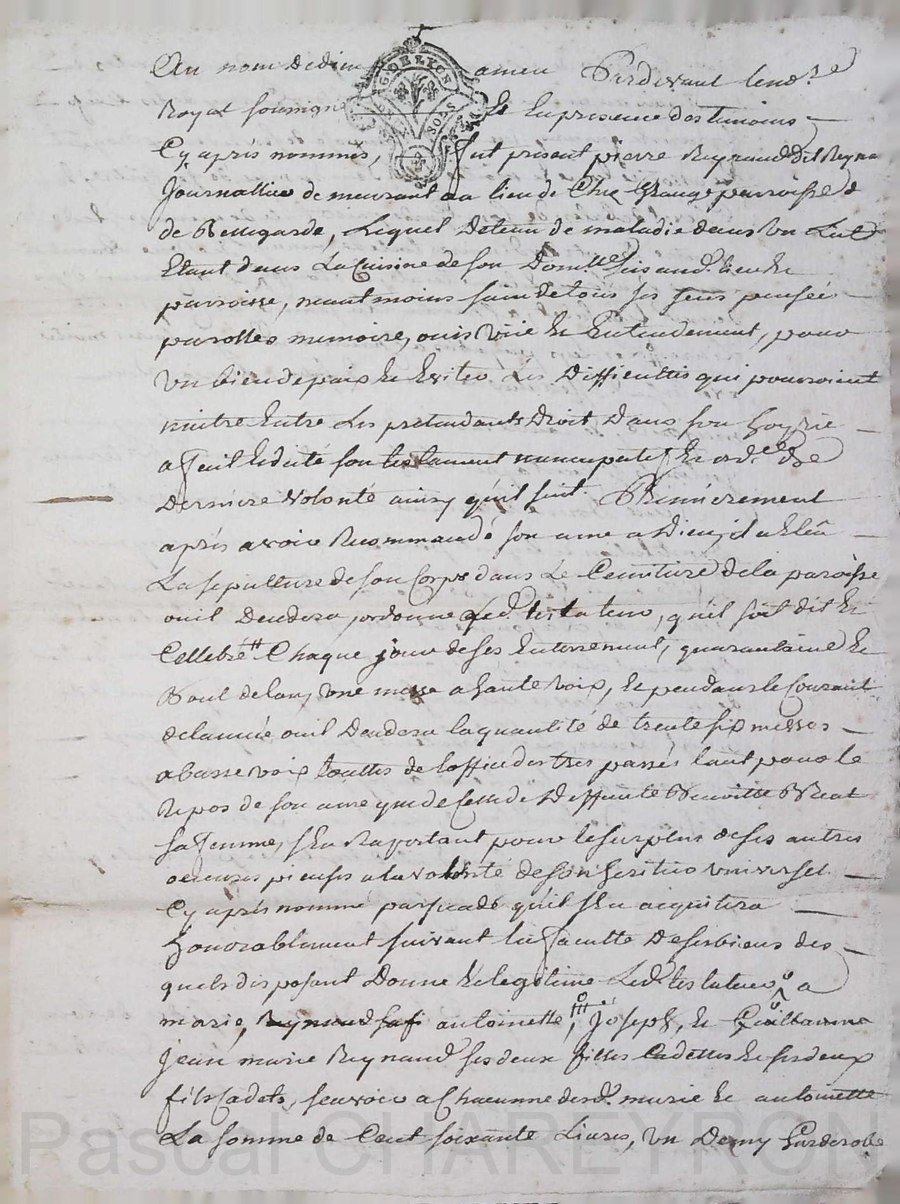 Au nom de dieu amen Pardevant le no.re
Royal soussigné Et En presence des temoins
Cy après nommés, fut présent pierre Reynaud dit Reyna
Journallier demeurant au lieu de Chez Grange parroisse d
de Bellegarde, Lequel Detenu de maladie dans Un Lit
Etant dans La Cuisine de son Dom.lle susand. lieu Et
parroisse, neantmoins sain de tous ses sens pensée
parolles memoire, ouis Vuie Et Entendement, pour
Un bien de paix Et Eviter Les Difficultés qui pourroient
naitre Entre Les pretendants Droit Dans son hoyrie
a fait Et dicté son testament nuncupatif Et ord.ce De
Derniere Volonté ainsy qu'il suit. Premierement
après avoir Recommandé son ame a Dieu, il a Elû
La sepulture de son Corps dans Le Cemitiere de la paroisse
ou il Deudera, ordonne Led. testateur, qu'il soit dit Et
Cellebré Chaque jour de ses Enterrement, quarantaine Et
Bout de l'an, une messe a haute voix, Et pendant le Courant
de l'année ou il Deudera la quantité de trente six messes
a basse voix touttes de l'office des trespassés tant pour le
Repos de son ame que de Celle de Deffunte Benoitte
sa femme, s'En Raportant pour le surplus de ses autres
oeuvres pieuses a la volonté de son heritier universel
Cy après nommé persuadé qu'il s'En acquitera
honorablement suivant la faculté de ses biens des
quels disposant Donne Et legitime Led. testateur a
marie, Reynaud antoinette, Joseph, Et Guillaume
jean marie Reynaud ses deux filles Cadettes Et ses deux
fils Cadets, sçavoir a Chacunne desd. marie Et antoinette
La somme de Cent soixante Livres, Un Demy garderobe
G. DE LYON
SOLS
Pascal CHAREYRON